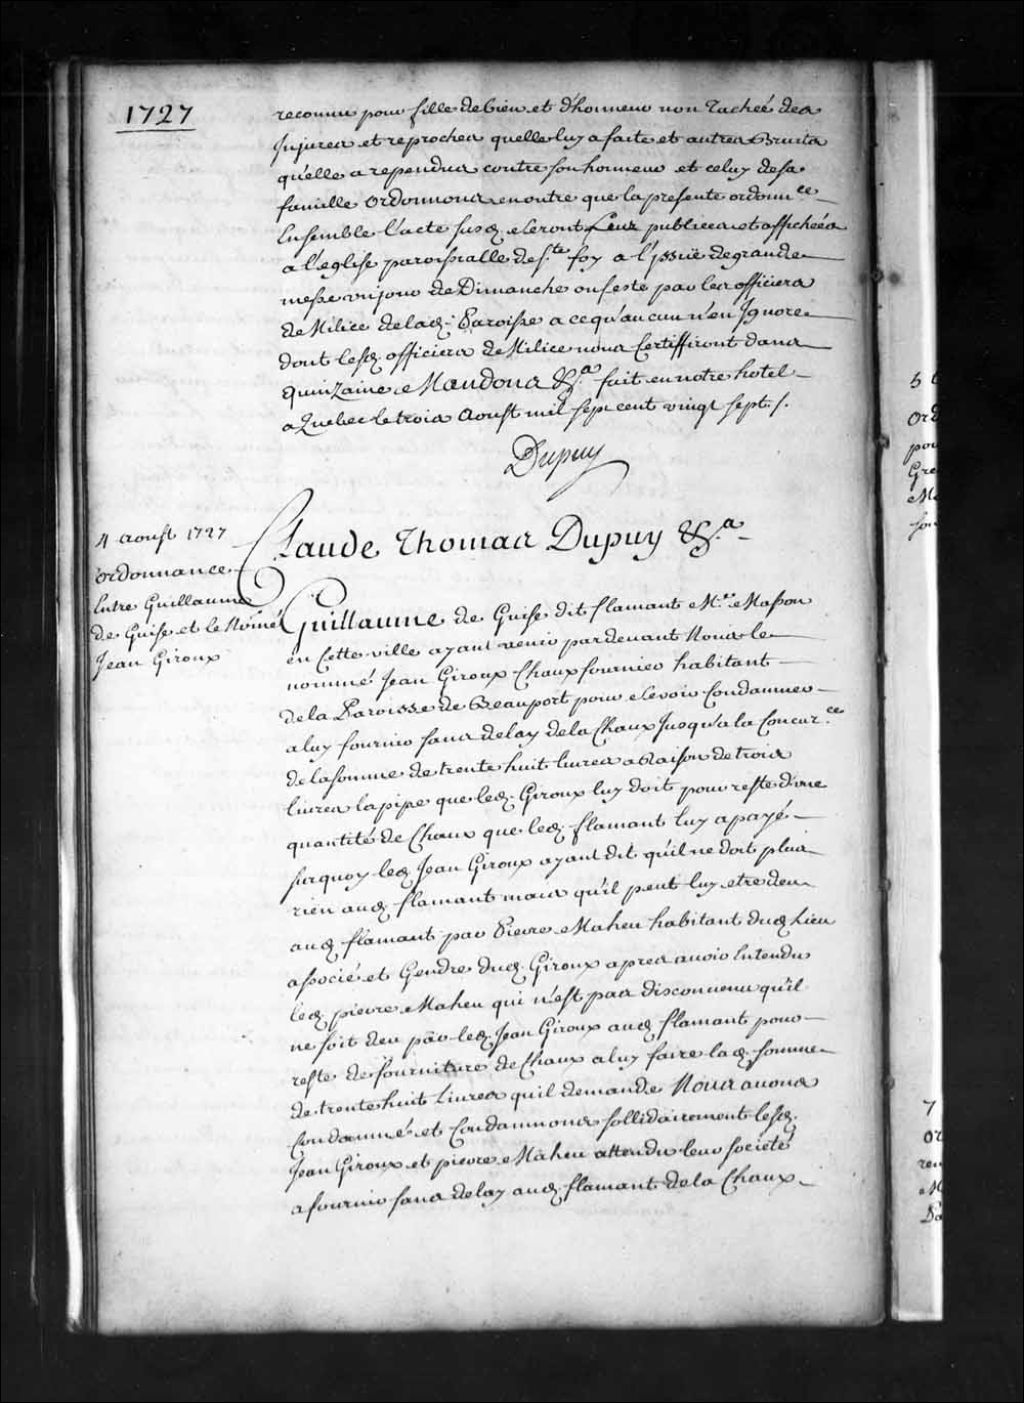 1727
reconnue pour fille de bien et d'honneur non tachée des
Injures et reproches quelle luy a faite et autres Bruits
qu'elle a rependus contre son honneur et celuy de sa
famille ordonnons en outre que la presente ordonn.ce
Ensemble l'acte susd. seront Leus publiées et affichées
a l'eglise paroissialle de s.te foy a l'jssüe de grande
messe un jour de Dimanche ou feste par les officiers
de Milice de lad. Paroisse a ce qu'aucun n'en Ignore
dont lesd. officiers de Milice nous Certiffiront dans
quinzaine Mandons &.a fait en notre hotel
a Quebec le trois Aoust mil sept cent vingt sept ./.
Dupuy
4 aoust 1727
ordonnance
Entre Guillaume
de Guise et le Nômé
Jean Giroux
Claude Thomas Dupuy &.a
Guillaume de Guise dit flamant M.e Masson
en Cette ville ayant venir pardevant Nous le
nommé Jean Giroux Chauxfournier habitant
de la Paroisse de Beauport pour se voir Condamner
a luy fournir sans delay de la Chaux Jusqu'a la Concur.ce
de la somme de trente huit livres a Raison de trois
livres la pipe que led. Giroux luy doit pour reste d'une
quantité de Chaux que led. flamant luy a payé
surquoy led. Jean Giroux ayant dit qu'il ne doit plus
rien aud. flamant mais qu'il peut luy etre deu
aud. flamant par Pierre Maheu habitant dud. Lieu
associé et Gendre dud. Giroux apres avoir Entendu
led. pierre Maheu qui n'est pas disconvenu qu'il
ne soit deu par led. Jean Giroux aud. flamant pour
reste de fourniture de Chaux a luy faire lad. somme
de trente huit Livres qu'il demande Nous avons
Condamné et Condamnons sollidairement lesd.
Jean Giroux et pierre Maheu attendu leur societé
a fournir sans delay aud. flamant de la Chaux